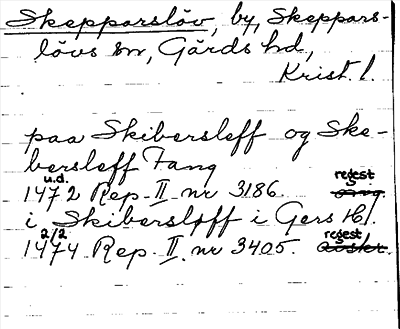 Skepparslöv, by, Skeppars-
lövs sn, Gärds hd,
Krist. l.
paa Skibersleff og Ske-
bersleff Fang
u.d. regest
1472 Rep. II nr 3186. orig.
i Skibersløff i Gers H/.
2/2 regest
1474 Rep. II. nr 3405. avskr.